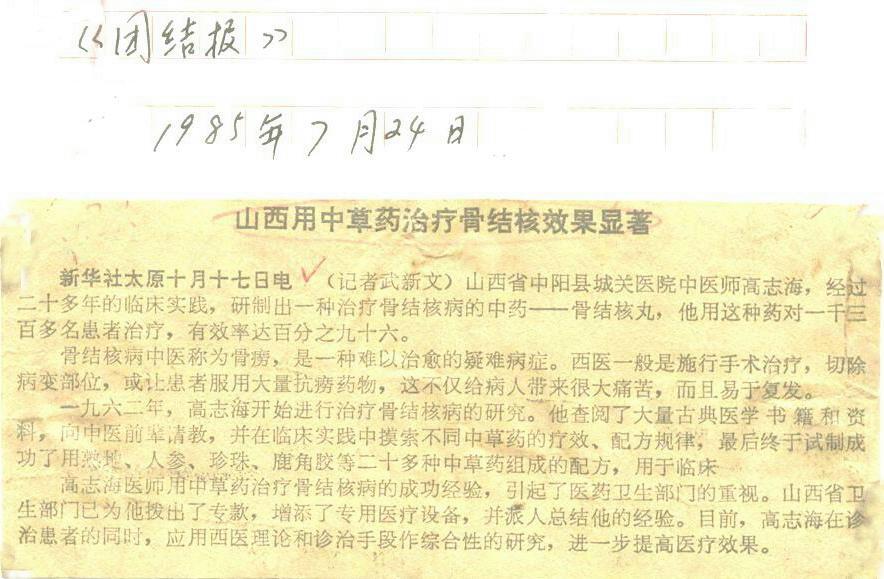 《团结报》
1985年7月24日
山西用中草药治疗骨结核效果显著
新华社太原十月十七日电 （记者武新文）山西省中阳县城关医院中医师高志海，经过
二十多年的临床实践，研制出一种治疗骨结核病的中药——骨结核丸，他用这种药对一千三
百多名患者治疗，有效率达百分之九十六。
骨结核病中医称为骨痨，是一种难以治愈的疑难病症。西医一般是施行手术治疗，切除
病变部位，或让患者服用大量抗痨药物，这不仅给病人带来很大痛苦，而且易于复发。
一九六二年，高志海开始进行治疗骨结核病的研究。他查阅了大量古典医学书籍和资
料，向中医前辈请教，并在临床实践中摸索不同中草药的疗效、配方规律，最后终于试制成
功了用熟地、人参、珍珠、鹿角胶等二十多种中草药组成的配方，用于临床
高志海医师用中草药治疗骨结核病的成功经验，引起了医药卫生部门的重视。山西省卫
生部门已为他拨出了专款，增添了专用医疗设备，并派人总结他的经验。目前，高志海在诊
治患者的同时，应用西医理论和诊治手段作综合性的研究，进一步提高医疗效果。